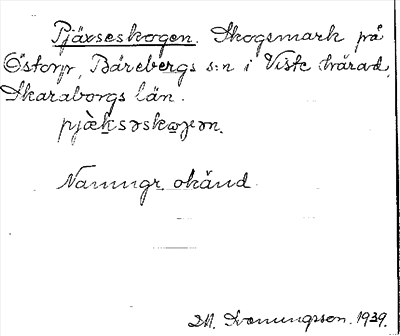 Pjäxseskogen. Skogsmark på
Östorp, Bärebergs s:n i Viste härad,
Skaraborgs län.
pjæ̀ksəskoɡən.
Namngr. okänd.
M. 1939.